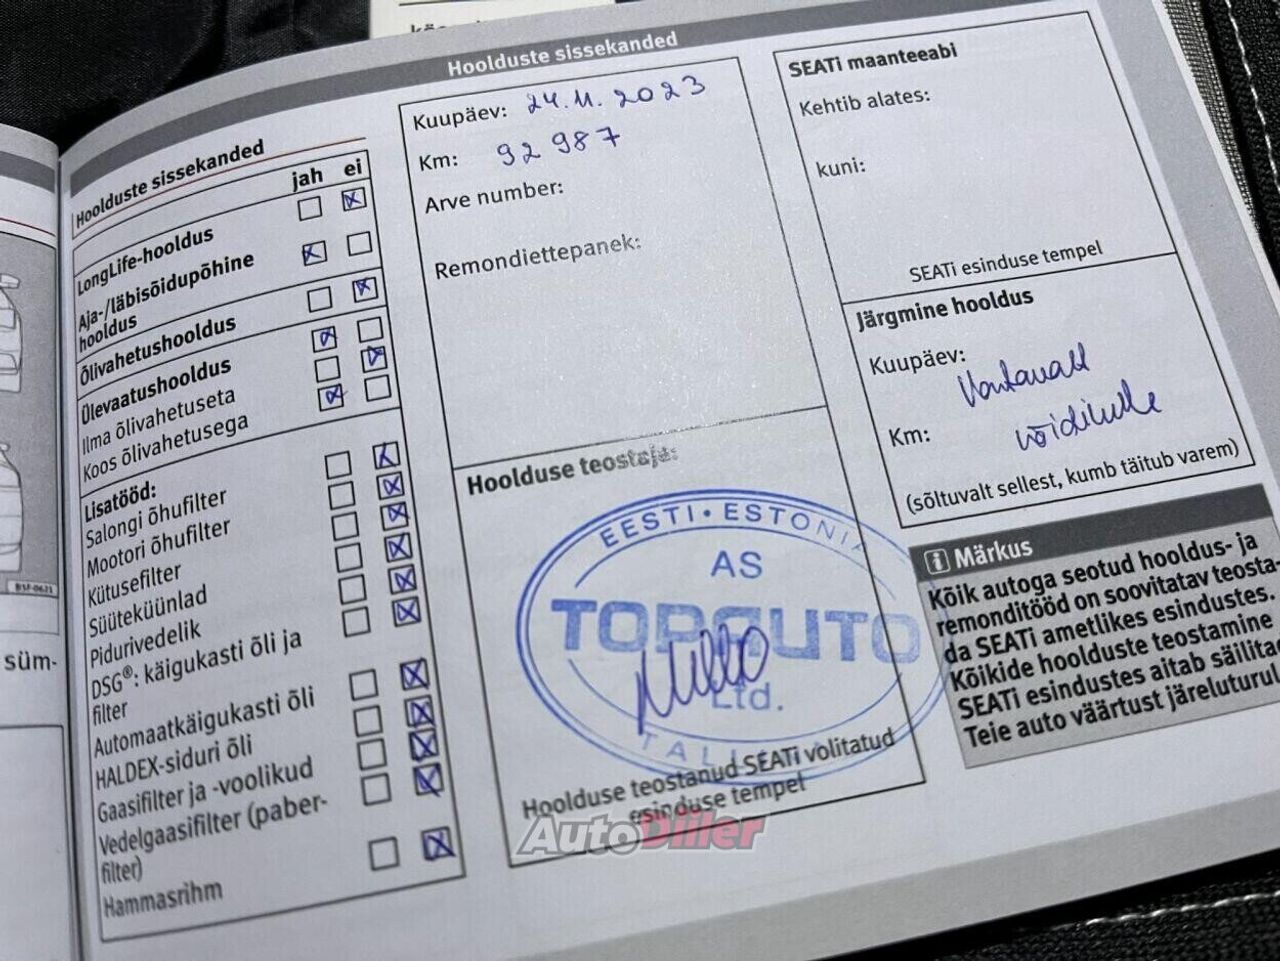 Hoolduste sissekanded
Hoolduste sissekanded
jah ei
LongLife-hooldus
Aja-/läbisõidupõhine
hooldus
Õlivahetushooldus
Ülevaatushooldus
Ilma õlivahetuseta
Koos õlivahetusega
Lisatööd:
Salongi õhufilter
Mootori õhufilter
Kütusefilter
Süüteküünlad
Pidurivedelik
DSG®: käigukasti õli ja
filter
Automaatkäigukasti õli
HALDEX-siduri õli
Gaasifilter ja -voolikud
Vedelgaasifilter (paber-
filter)
Hammasrihm
Kuupäev: 24.11.2023
Km: 92 987
Arve number:
Remondiettepanek:
Hoolduse teostaja:
EESTI • ESTONIA
AS
TOPAUTO
Ltd.
TALLINN
Hoolduse teostanud SEATi volitatud
esinduse tempel
SEATi maanteeabi
Kehtib alates:
kuni:
SEATi esinduse tempel
Järgmine hooldus
Kuupäev: Vastavalt
Km: näidikule
(sõltuvalt sellest, kumb täitub varem)
Märkus
Kõik autoga seotud hooldus- ja
remonditööd on soovitatav teosta-
da SEATi ametlikes esindustes.
Kõikide hoolduste teostamine
SEATi esindustes aitab säilita
Teie auto väärtust järelturul
süm-
AutoDiiler